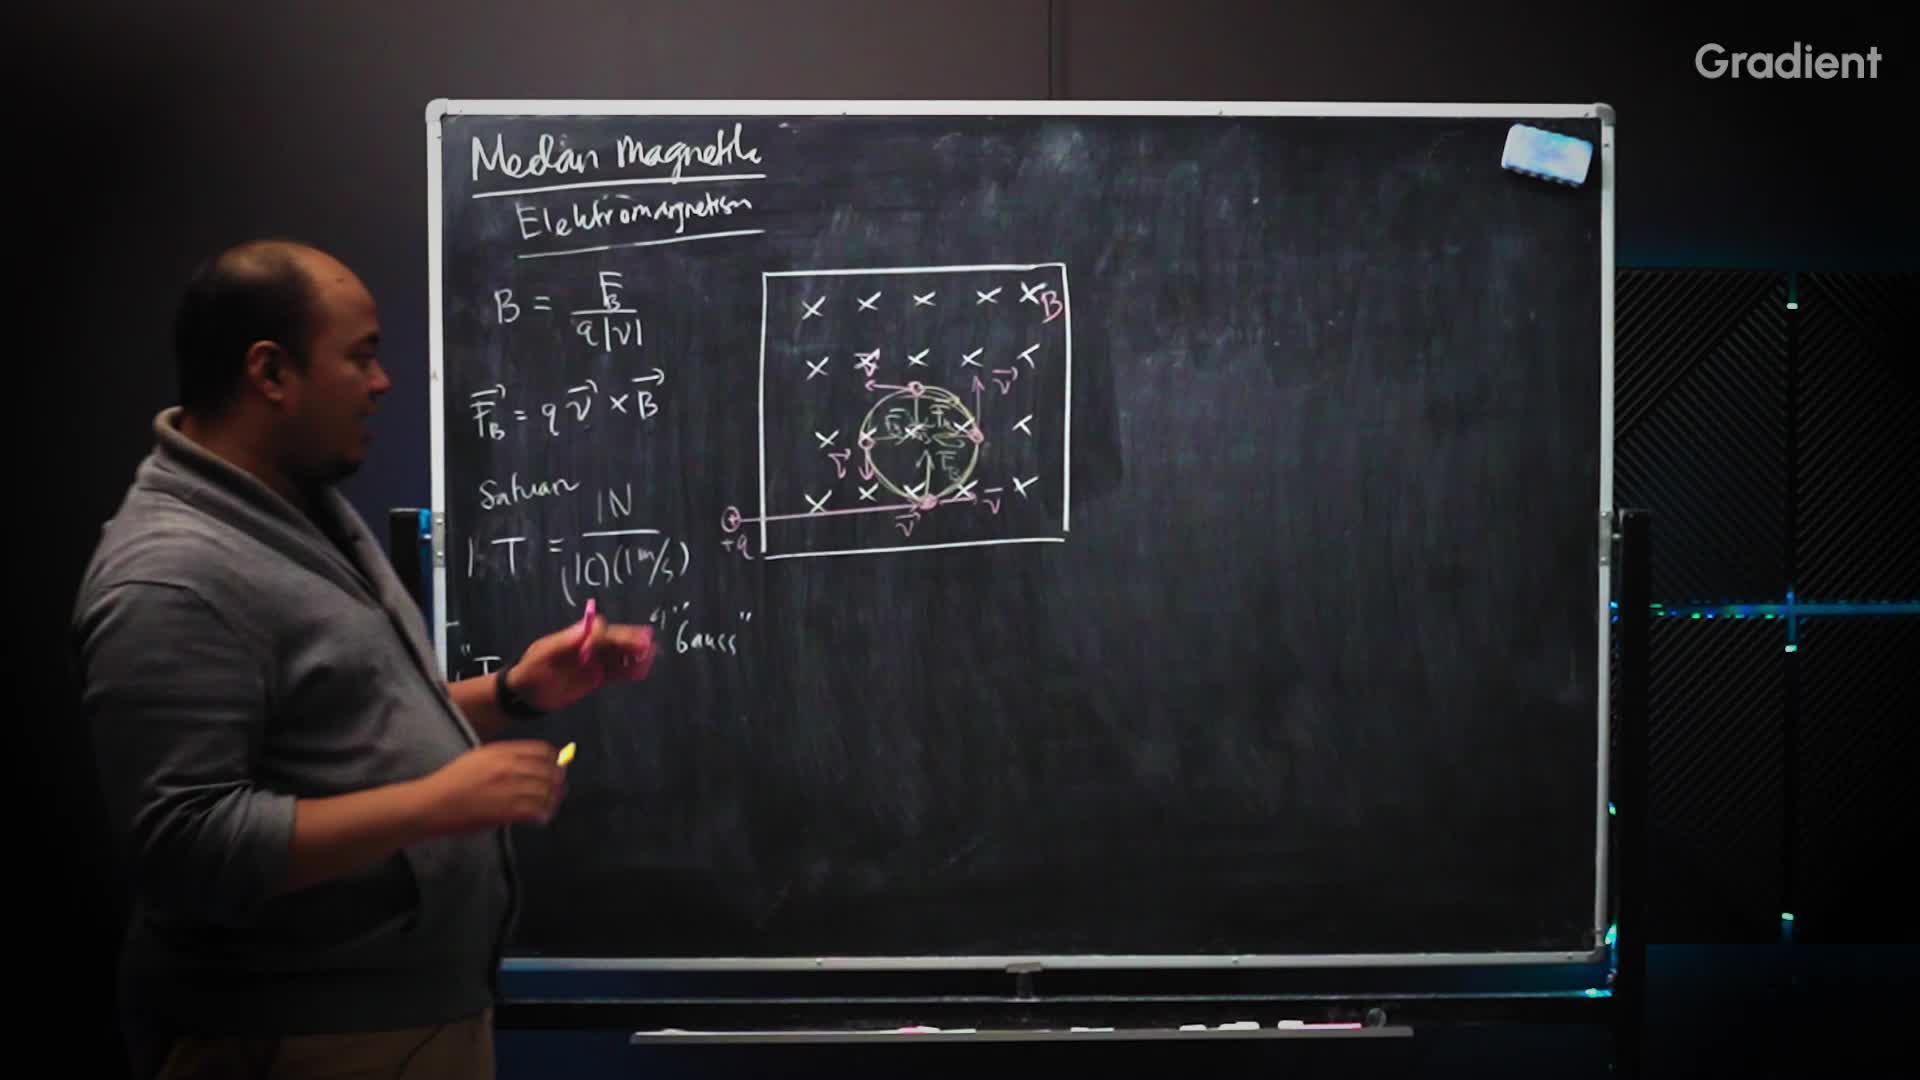 Gradient
Medan magnetik
Elektromagnetism
B = F_B / q|v|
F⃗_B = q v⃗ × B⃗
Satuan
1 T = 1N / (1C)(1 m/s)
"Gauss"
× × × × × B
× × × ×
v⃗
×
v⃗
F_B
× × × × ×
v⃗
v⃗
+
+q